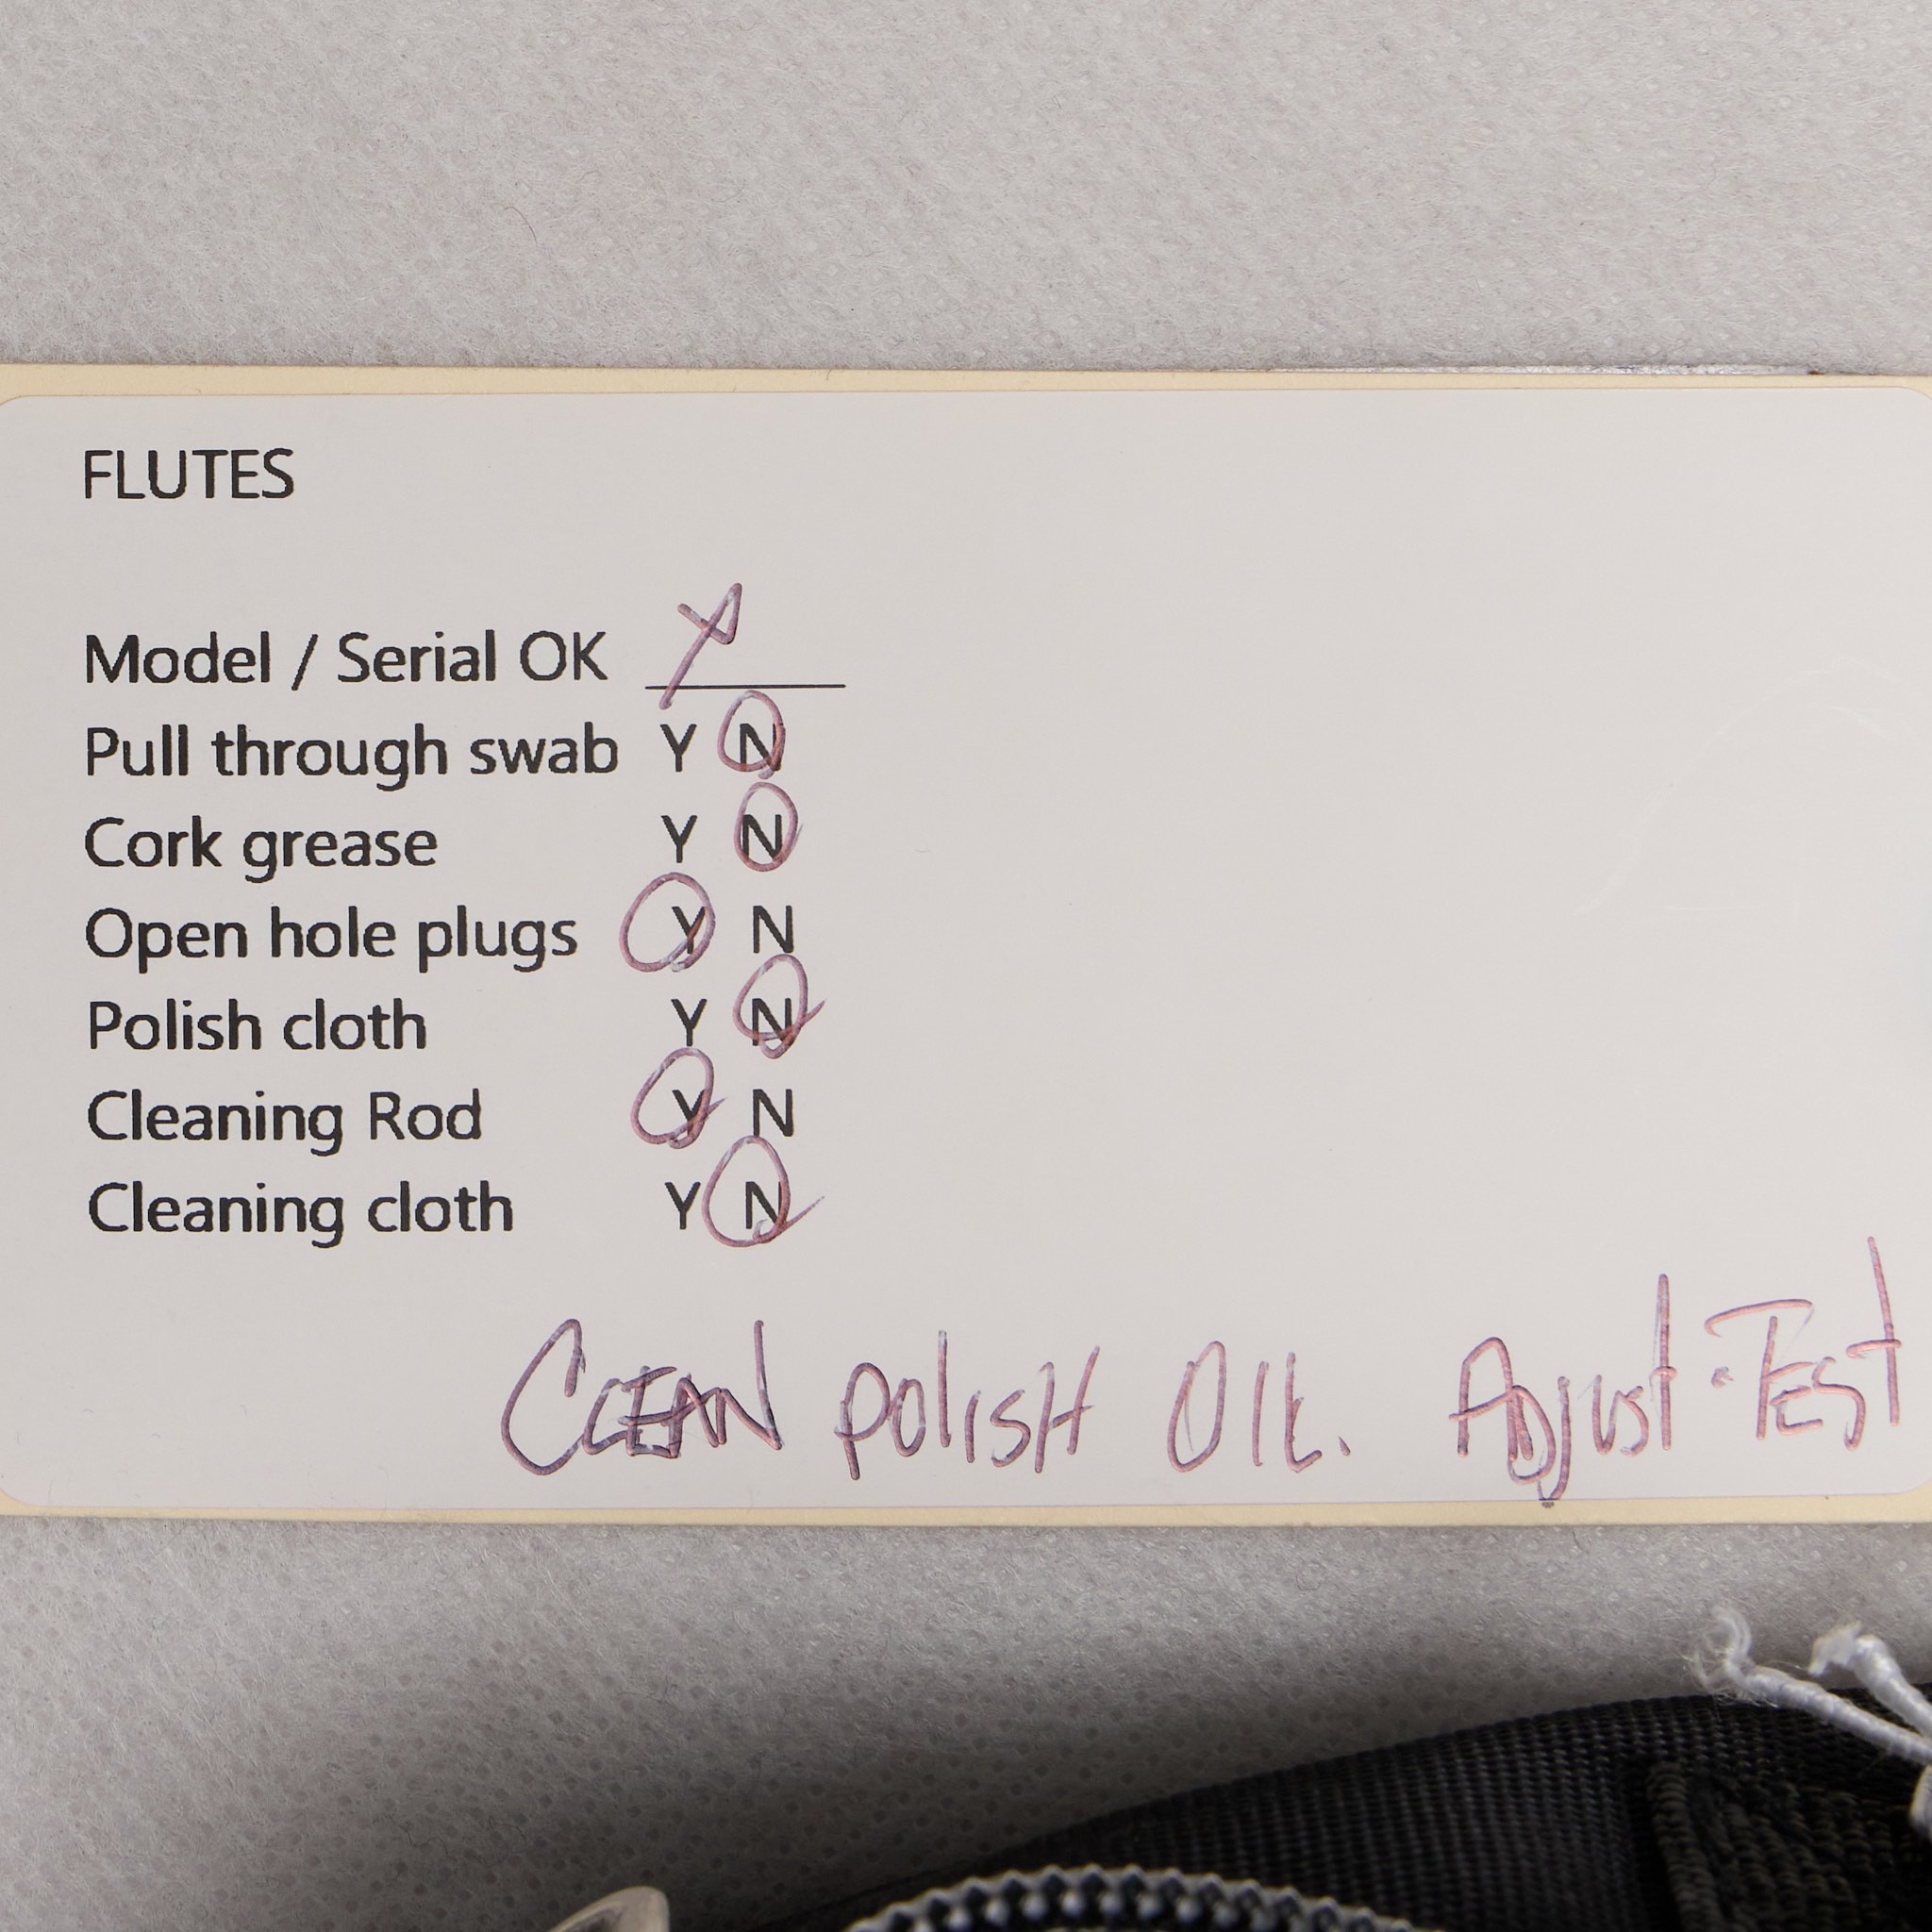 FLUTES
Model / Serial OK X
Pull through swab Y N
Cork grease Y N
Open hole plugs Y N
Polish cloth Y N
Cleaning Rod Y N
Cleaning cloth Y N
CLEAN POLISH OIL. ADJUST · TEST